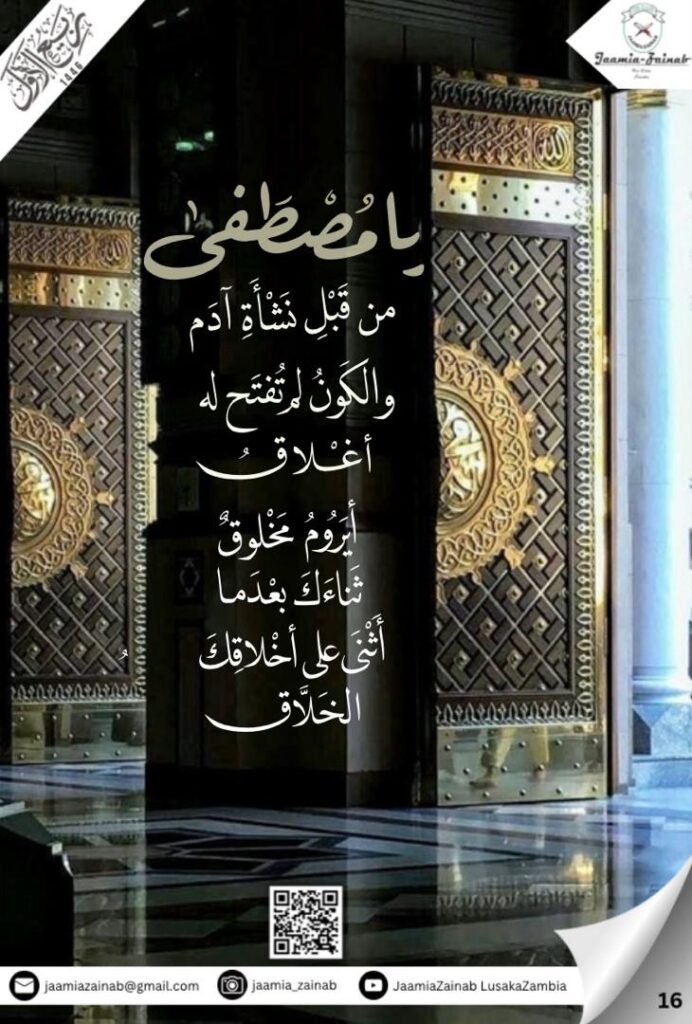 ربيع الأول
1446
Jaamia-Zainab
يا مُصْطَفىٰ
من قَبْلِ نَشْأَةِ آدَم
والكَونُ لم تُفتَح له
أغْلاقُ
أيَرُومُ مَخْلوقٌ
ثَناءَكَ بعْدَما
أَثْنَى على أخْلاقِكَ
الخَلَّاق
الله
jaamiazainab@gmail.com
jaamia_zainab
JaamiaZainab LusakaZambia
16